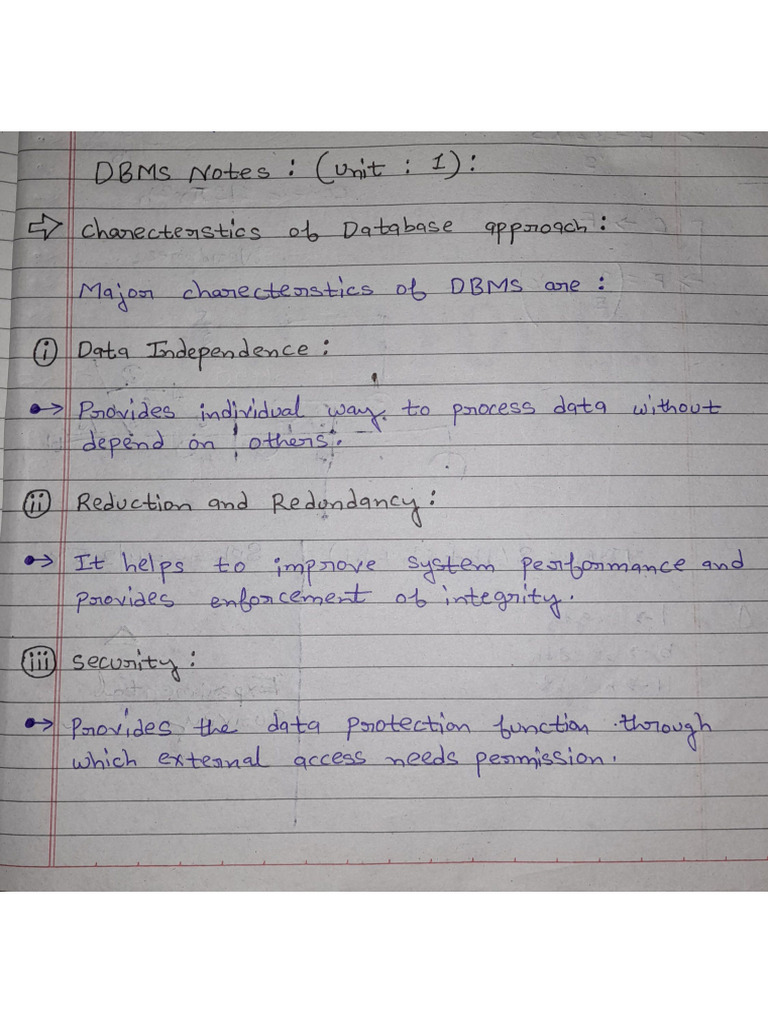 DBMS Notes : (Unit : 1) :
⇨ Charecterstics of Database approach :
Major charecterstics of DBMS are :
(i) Data Independence :
•→ Provides individual way to process data without
depend on others.
(ii) Reduction and Redundancy :
•→ It helps to improve system performance and
provides enforcement of integrity.
(iii) Security :
•→ Provides the data protection function through
which external access needs permission.